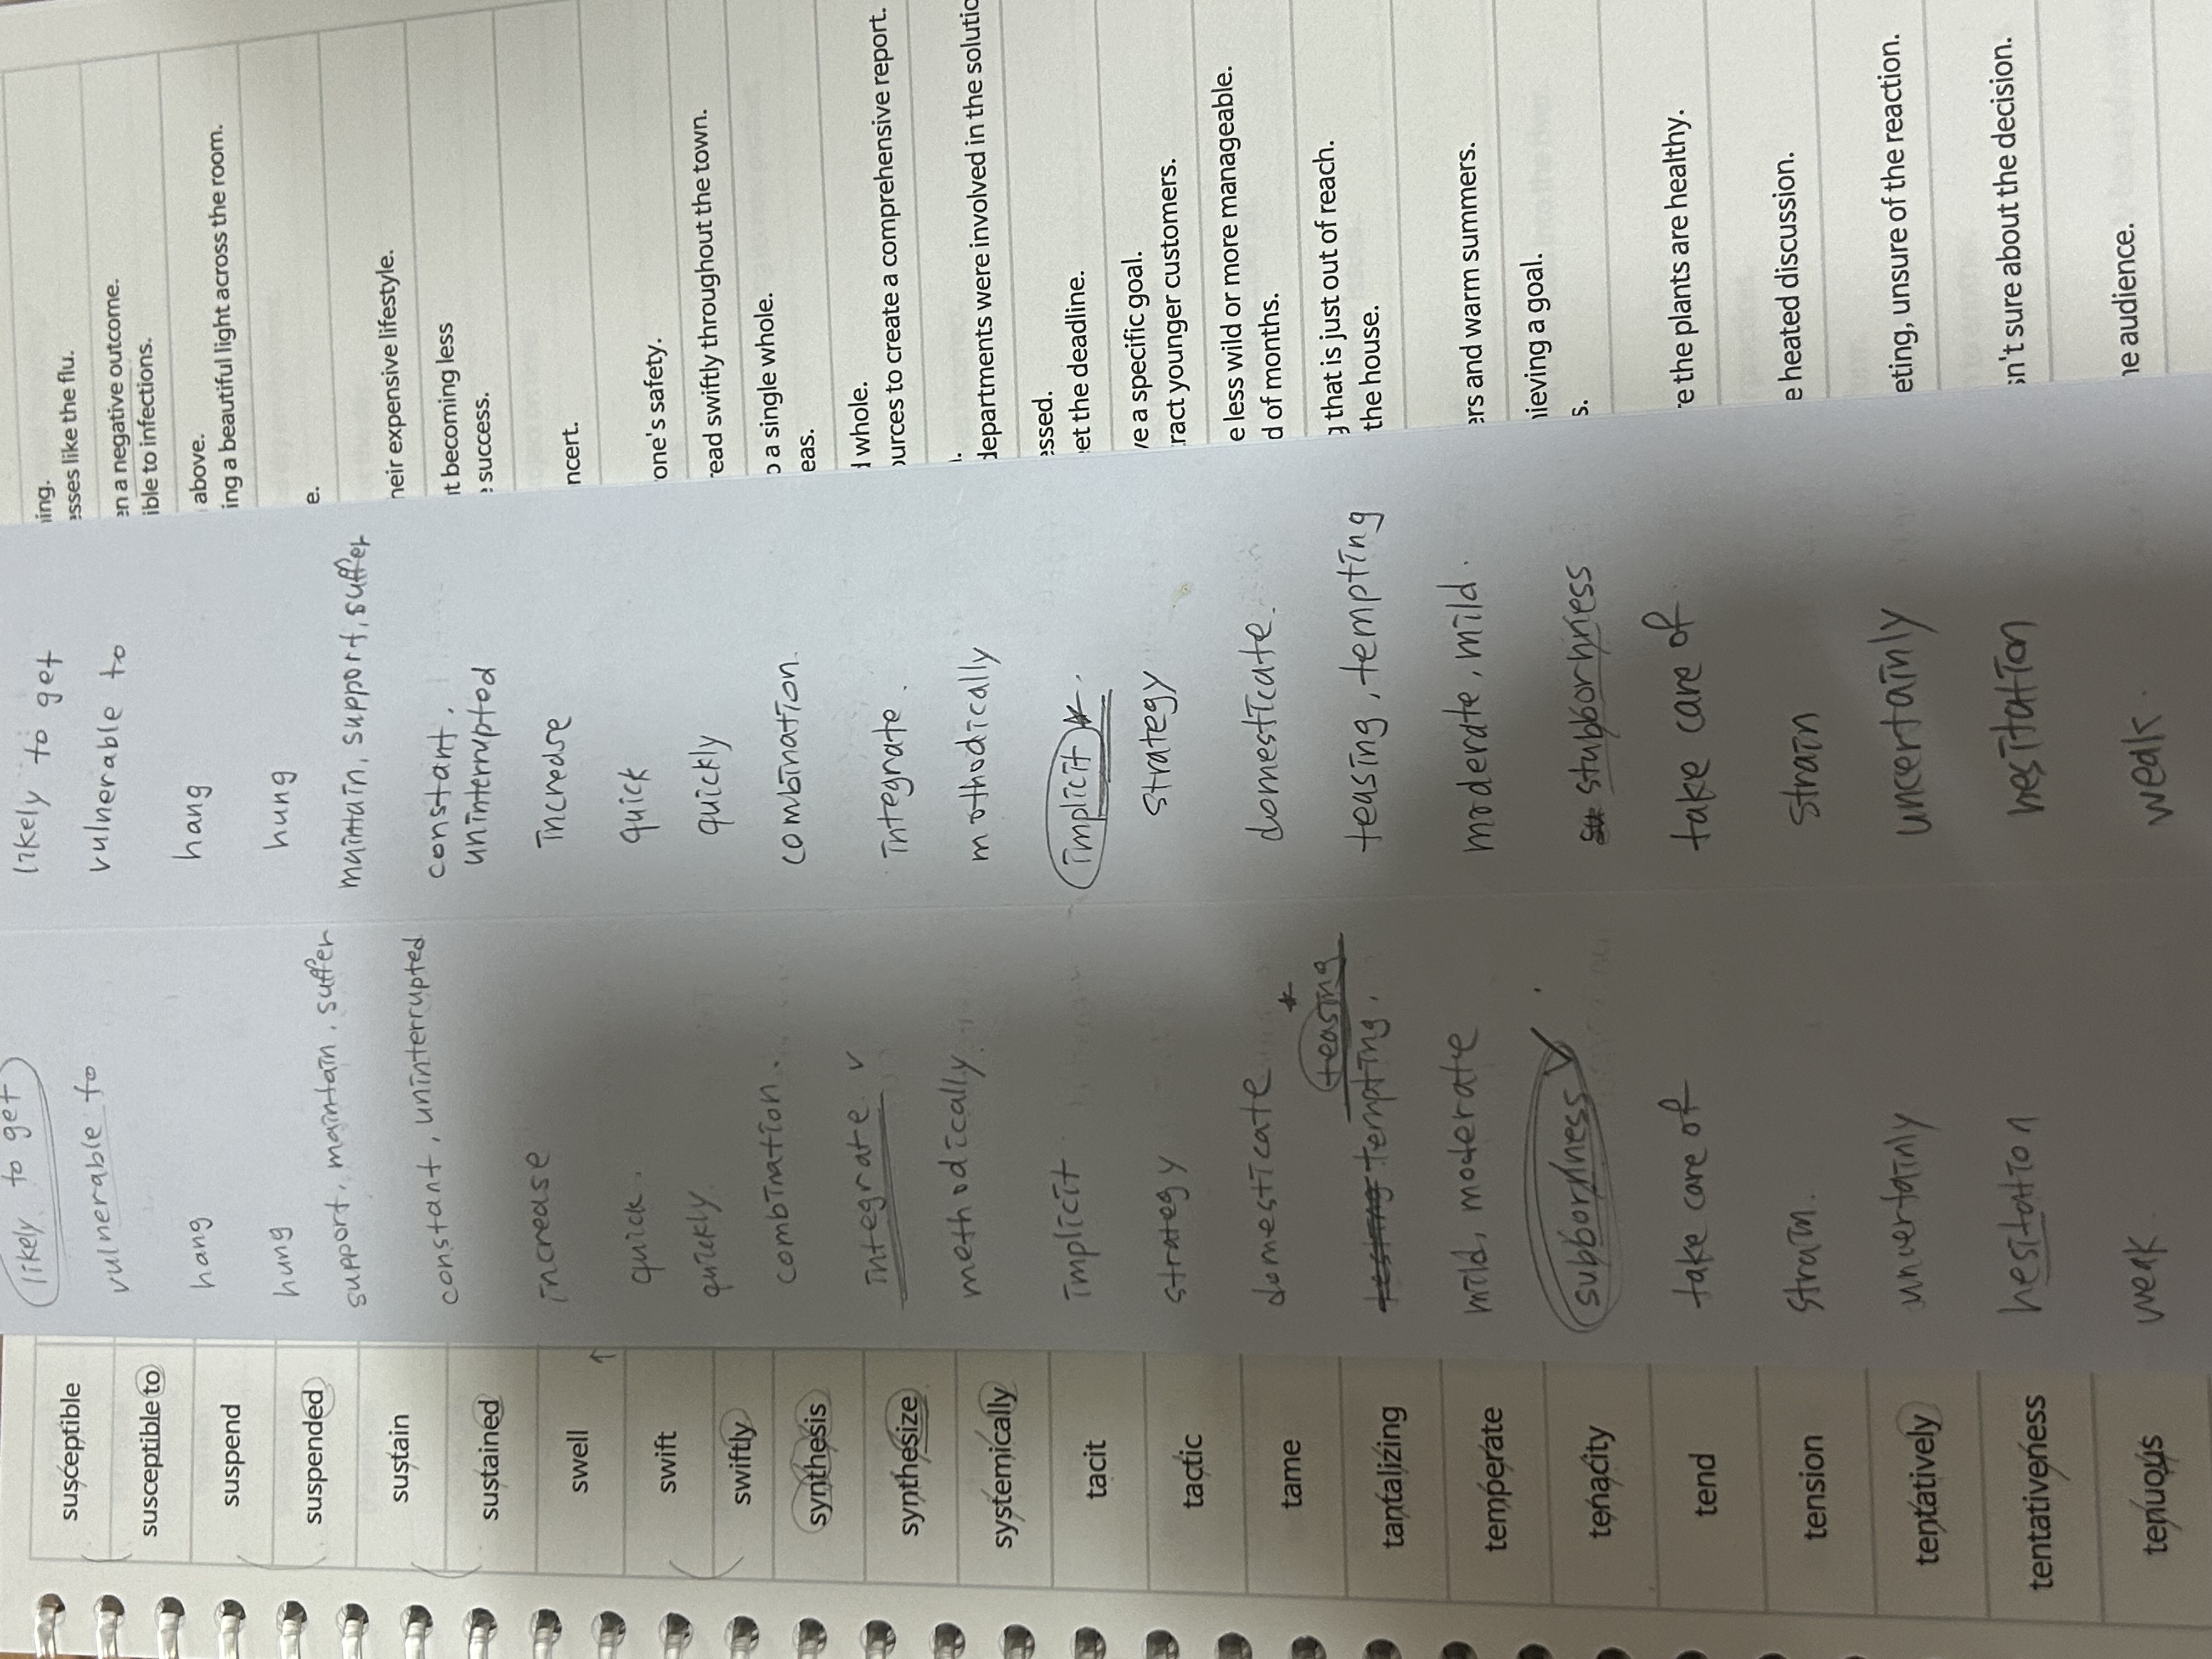 susceptible
likely to get
likely to get
ing.
sses like the flu.
susceptible to
vulnerable to
vulnerable to
n a negative outcome.
ible to infections.
suspend
hang
hang
above.
ing a beautiful light across the room.
suspended
hung
hung
e.
sustain
support, maintain, suffer
maintain, support, suffer
heir expensive lifestyle.
sustained
constant, uninterrupted
constant,
uninterrupted
t becoming less
success.
swell
↑
increase
increase
ncert.
swift
quick.
quick
one's safety.
swiftly
quickly.
quickly
read swiftly throughout the town.
synthesis
combination.
combination.
o a single whole.
eas.
synthesize
integrate v
integrate.
d whole.
ources to create a comprehensive report.
systemically
methodically.
mothodically
departments were involved in the solutio
tacit
implicit
implicit
essed.
et the deadline.
tactic
strategy
strategy
ve a specific goal.
ract younger customers.
tame
domesticate
domesticate.
e less wild or more manageable.
d of months.
tantalizing
teasing
tempting.
teasing, tempting
g that is just out of reach.
the house.
temperate
mild, moderate
moderate, mild.
ers and warm summers.
tenacity
subborness
stubborness
ieving a goal.
s.
tend
take care of
take care of
e the plants are healthy.
tension
strain.
strain
e heated discussion.
tentatively
unvertainly
uncertainly
eting, unsure of the reaction.
tentativeness
hesitation
hesitation
n't sure about the decision.
tenuous
weak.
weak.
e audience.